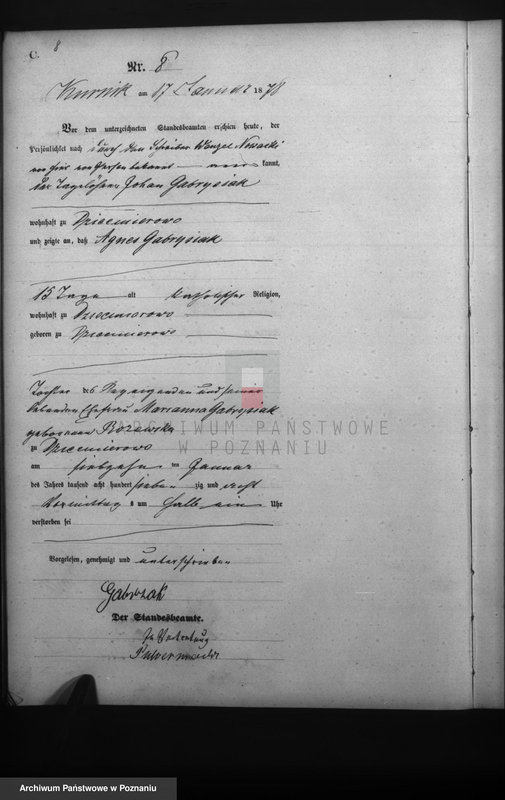 C.
8
Nr. 8
Kurnik am 17 Januar 1878
Vor dem unterzeichneten Standesbeamten erschien heute, der
Persönlichkeit nach durch den Schreiber Nowacki
von hier von Person bekannt kannt,
der Tagelöhner Johan Gabrysiak
wohnhaft zu Dziecmierowo
und zeigte an, daß Agnes Gabrysiak
15 Tage alt katholischer Religion,
wohnhaft zu Dziecmierowo
geboren zu Dziecmierowo
Tochter des Anzeigenden und seiner
lebenden Ehefrau Marianna Gabrysiak
geborenen
zu Dziecmierowo
am siebzehn ten Januar
des Jahres tausend acht hundert sieben zig und acht
Vormittag s um halb ein Uhr
verstorben sei
Vorgelesen, genehmigt und unterschrieben
Der Standesbeamte.
In Vertretung
ARCHIWUM PAŃSTWOWE
W POZNANIU
Archiwum Państwowe w Poznaniu